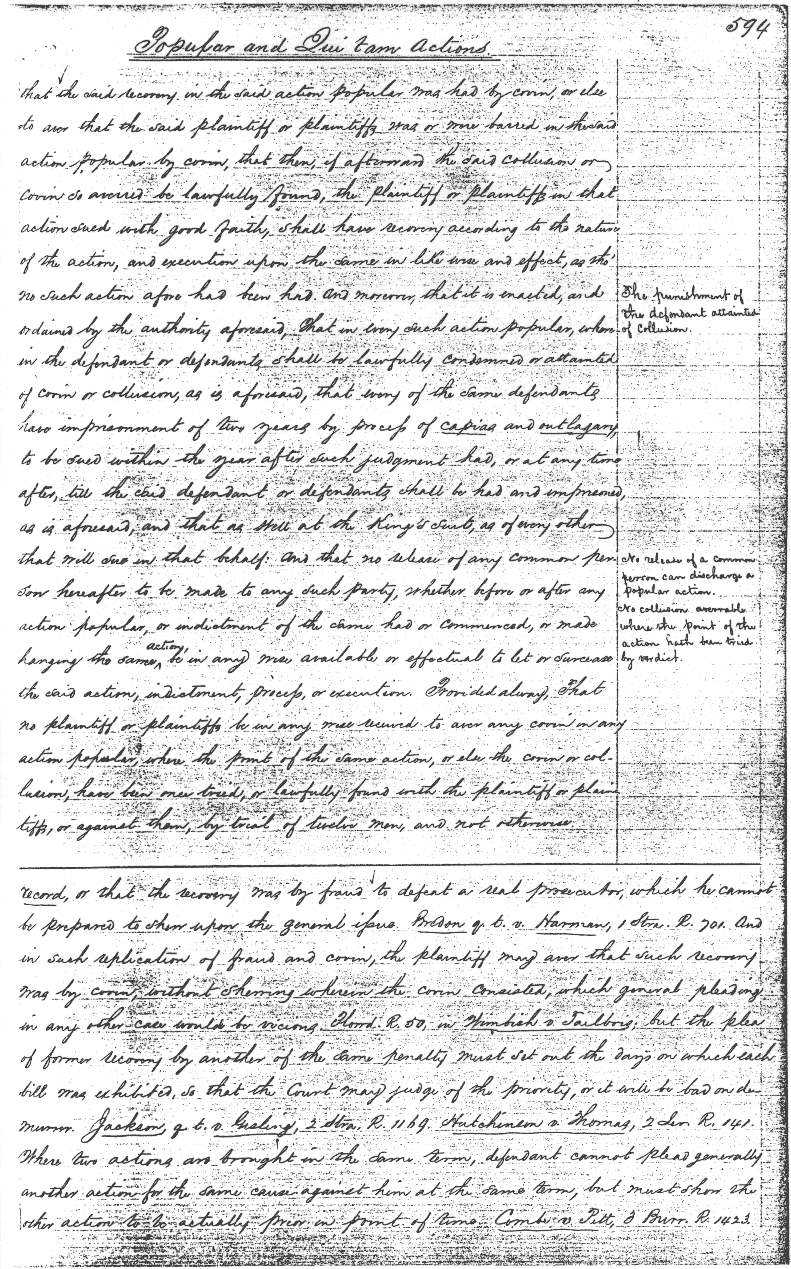 594
Popular and Qui tam Actions.
that the said recovery, in the said action popular was had by covin, or else
to aver that the said plaintiff or plaintiffs was or were barred in the said
action popular by covin, that then, if afterward the said collusion or
covin so averred be lawfully found, the plaintiff or plaintiffs in that
action sued with good faith, shall have recovery according to the nature
of the action, and execution upon the same in like wise and effect, as tho'
no such action afore had been had. And moreover, that it is enacted, and
ordained by the authority aforesaid, That in every such action popular, where
in the defendant or defendants shall be lawfully condemned or attainted
of covin or collusion, as is aforesaid, that every of the same defendants
have imprisonment of two years by process of capias and outlagary,
to be sued within the year after such judgment had, or at any time
after, till the said defendant or defendants shall be had and imprisoned,
as is aforesaid, and that as well at the King's suit, as of every other
that will sue in that behalf: And that no release of any common per-
son hereafter to be made to any such party, whether before or after any
action popular, or indictment of the same had or commenced, or made
hanging the same action, be in any wise available or effectual to let or surcease
the said action, indictment, process, or execution. Provided alway, That
no plaintiff or plaintiffs be in any wise received to aver any covin in any
action popular, where the point of the same action, or else the covin or col-
lusion, have been once tried, or lawfully found with the plaintiff or plain
tiffs, or against them, by trial of twelve men, and not otherwise.
The punishment of
the defendant attainted
of collusion.
No release of a common
person can discharge a
popular action.
No collusion averrable
where the point of the
action hath been tried
by verdict.
record, or that the recovery was by fraud to defeat a real prosecutor, which he cannot
be prepared to shew upon the general issue. Bredon q. t. v. Harman, 1 Stra. R. 701. And
in such replication of fraud and covin, the plaintiff may aver that such recovery
was by covin, without shewing wherein the covin consisted, which general pleading
in any other case would be vicious. Plowd. R. 50, in Wimbish v. Tailbois; but the plea
of former recovery by another of the same penalty must set out the days on which each
bill was exhibited, so that the Court may judge of the priority, or it will be bad on de-
murrer. Jackson, q. t. v. Gisling, 2 Stra. R. 1169. Hutchinson v. Thomas, 2 Lev. R. 141.
Where two actions are brought in the same term, defendant cannot plead generally
another action for the same cause against him at the same term, but must show the
other action to be actually prior in point of time. Combe v. Pitt, 3 Burr. R. 1423.